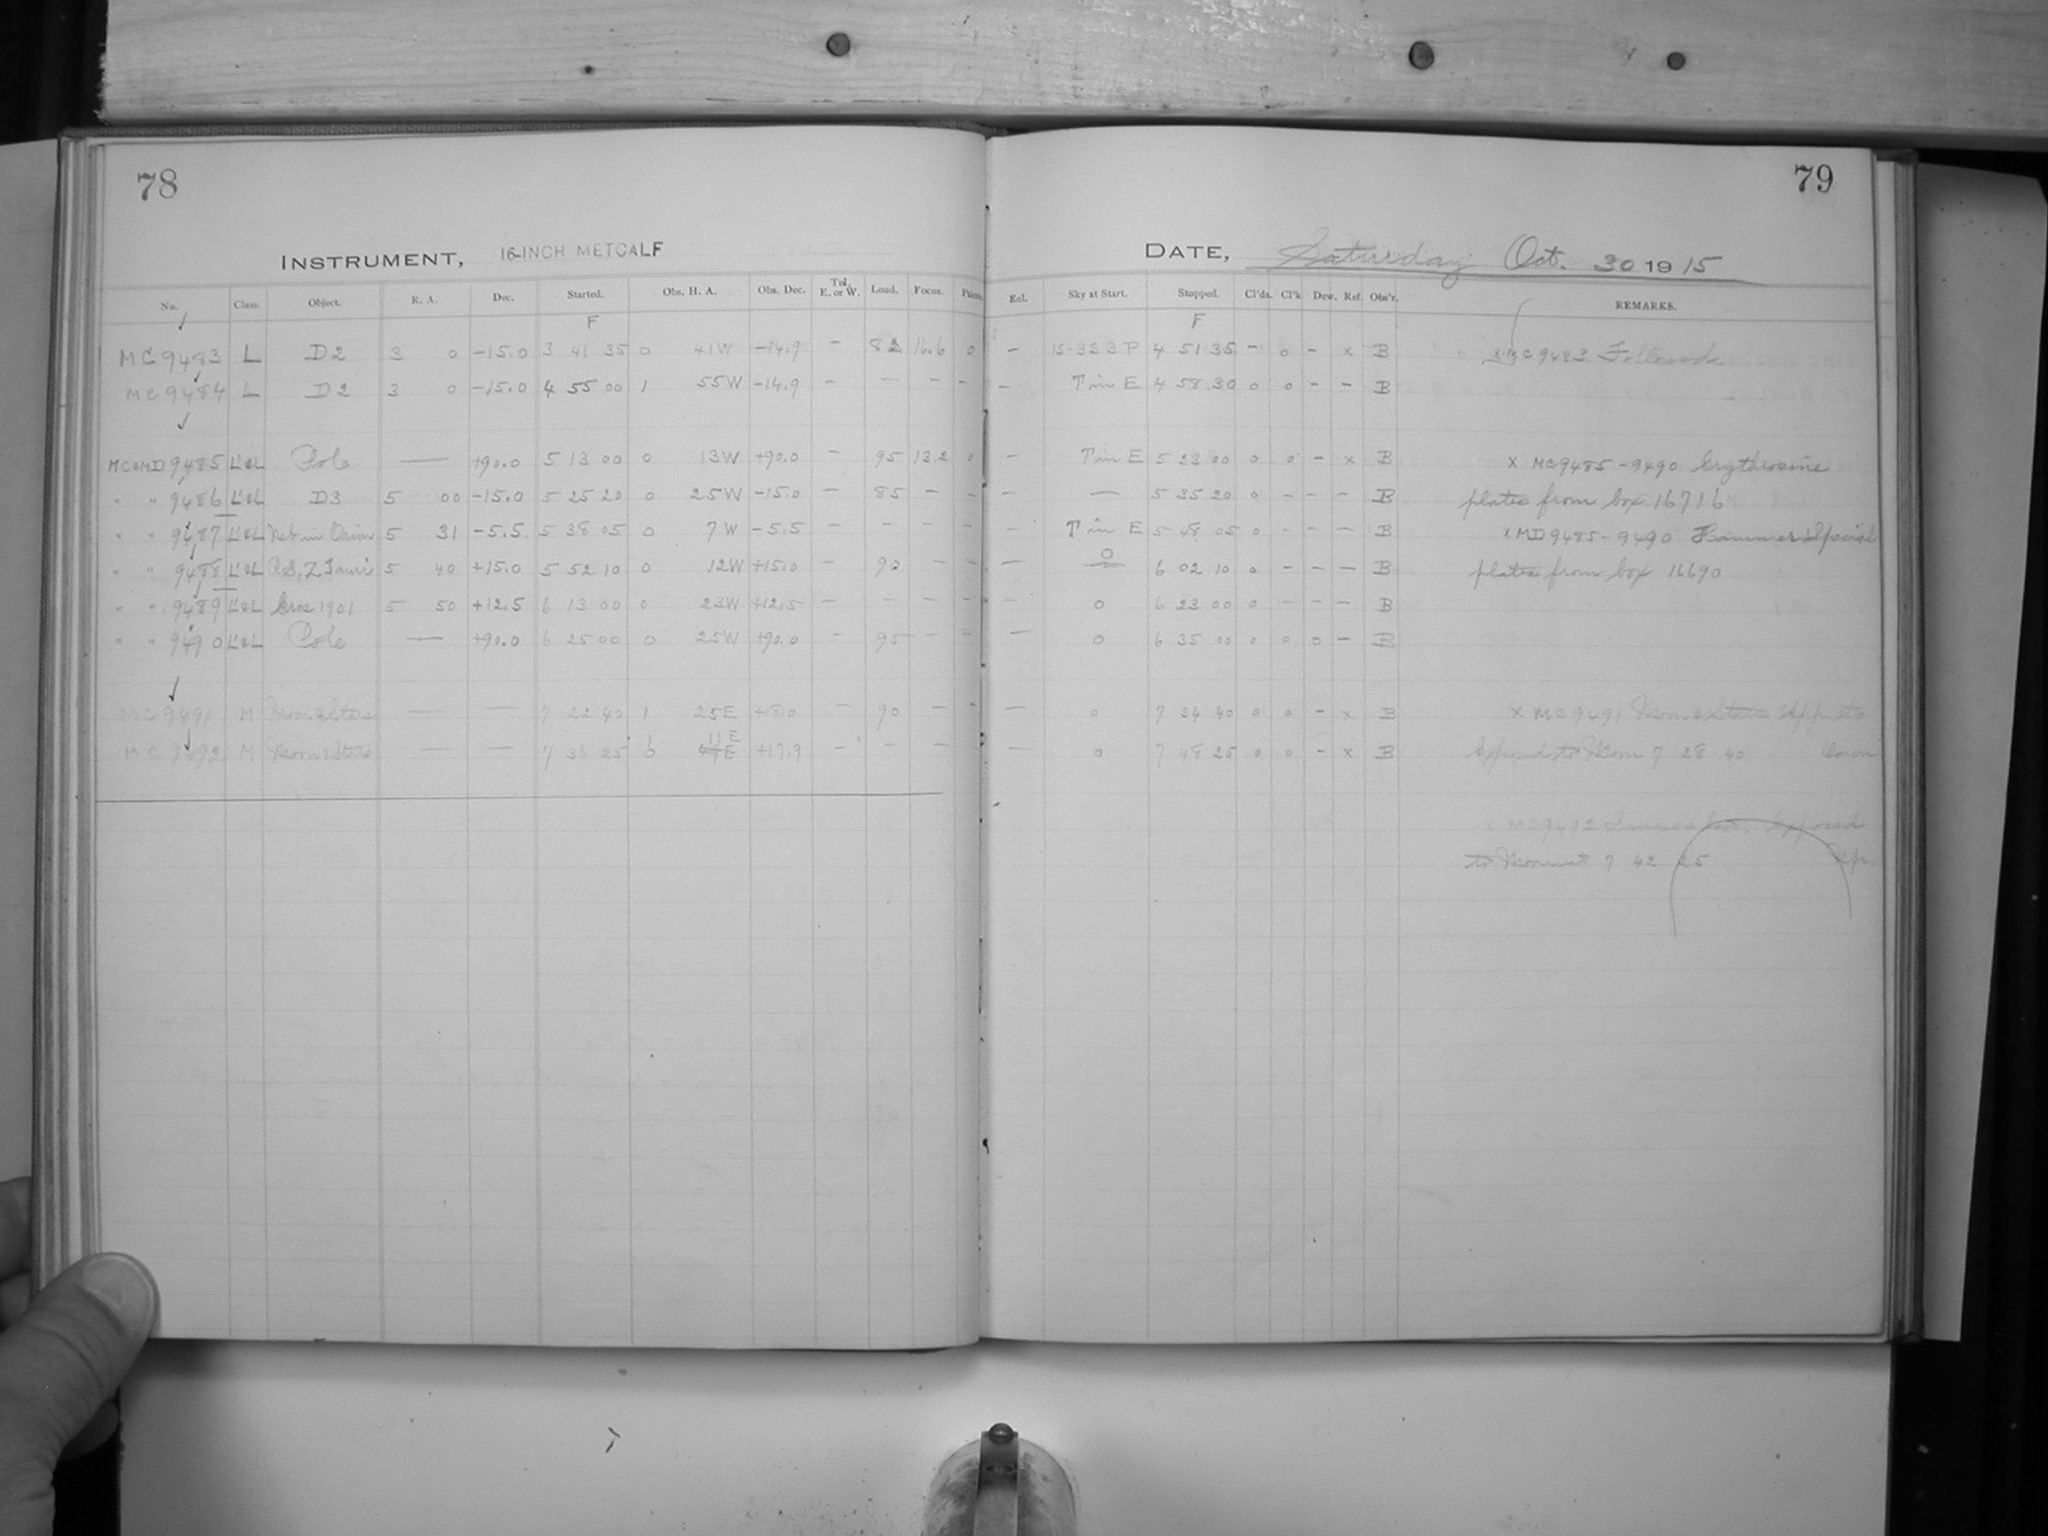 78
79
INSTRUMENT, 16-INCH METCALF
DATE, Saturday Oct. 30 1915
No. Class. Object. R. A. Dec. Started. Obs. H. A. Obs. Dec. Tel. E. or W. Load. Focus. Enl. Sky at Start. Stopped. Cl'ds. Cl'k Dew. Ref. Obs'r. REMARKS.
F F
MC 9483 L D2 3 0 -15.0 3 41 35 0 41W -14.9 - 82 16.6 0 - 15-353 P 4 51 35 - 0 - x B x MC9483 Followed
MC 9484 L D2 3 0 -15.0 4 55 00 1 55W -14.9 - - - - - T in E 4 58 30 0 0 - - B
MC&MD 9485 L'&L Pole — +90.0 5 13 00 0 13W +90.0 - 95 13.2 - T in E 5 23 00 0 0 - x B x MC9485-9490 Erythrosine
" " 9486 L'&L D3 5 00 -15.0 5 25 20 0 25W -15.0 - 85 - - - — 5 35 20 0 - - - B plates from box 16716
" " 9487 L'&L Neb in Orion 5 31 -5.5 5 38 05 0 7W -5.5 - - - - - T in E 5 48 05 0 - - - B x MD9485-9490 Hammer Special
" " 9488 L'&L 5 40 +15.0 5 52 10 0 12W +15.0 - 90 - - - 0 6 02 10 0 - - - B plates from box 16690
" " 9489 L'&L Eros 1901 5 50 +12.5 6 13 00 0 23W +12.5 - - - - - 0 6 23 00 0 - - - B
" " 9490 L'&L Pole — +90.0 6 25 00 0 25W +90.0 - 95 - - - 0 6 35 00 0 0 0 - B
MC 9491 M Moon & Stars — — 7 22 40 1 25E +18.0 - 90 - - - 0 7 34 40 0 0 - x B x MC9491 Moon & Stars
MC 9492 M Moon & Stars — — 7 36 25 11E +17.9 - - - - - 0 7 48 25 0 0 - x B Exposed to Moon 7 28 40
x MC9492 Exposed
to Moon at 7 42 25